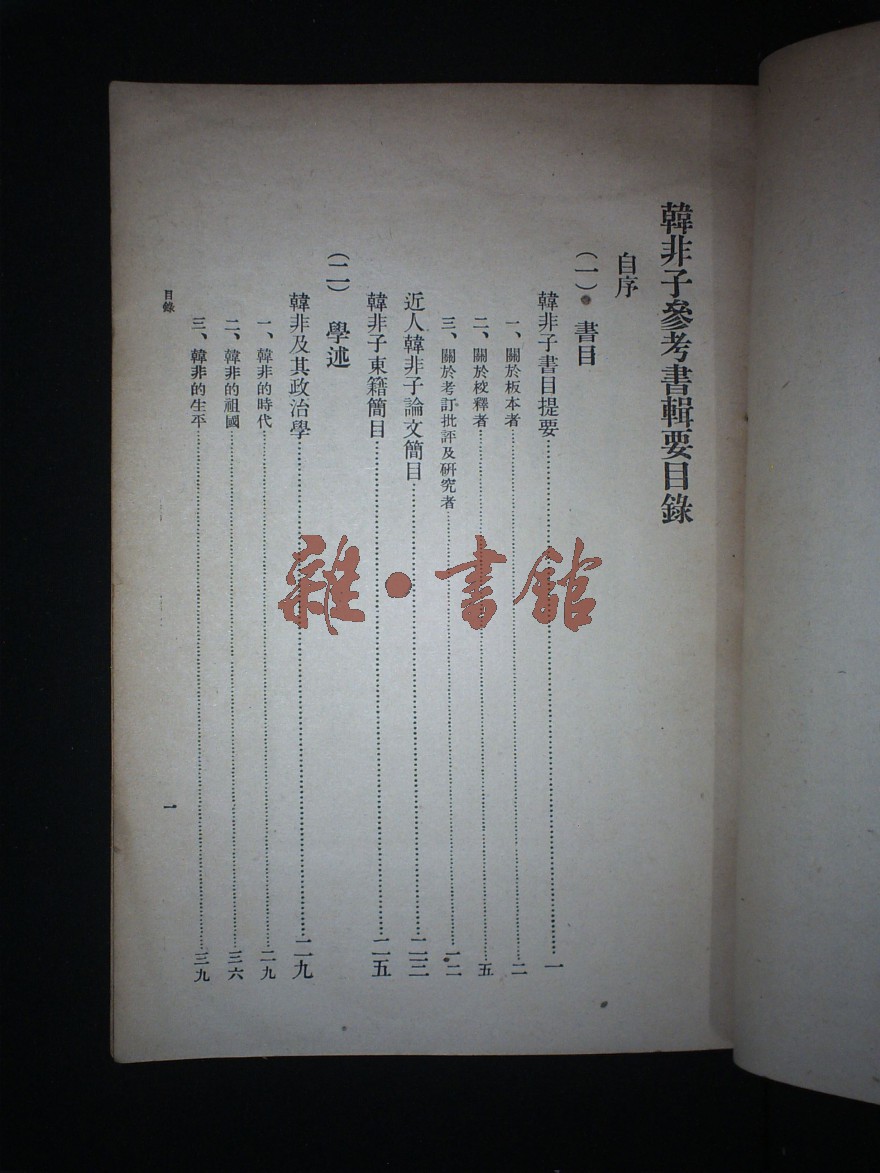 韓非子參考書輯要目錄
自序
(一) 書目
韓非子書目提要……一
一、關於板本者……二
二、關於校釋者……五
三、關於考訂批評及研究者……一二
近人韓非子論文簡目……二三
韓非子東籍簡目……二五
(二) 學述
韓非及其政治學……二九
一、韓非的時代……二九
二、韓非的祖國……三六
三、韓非的生平……三九
目錄
一
雜·書館